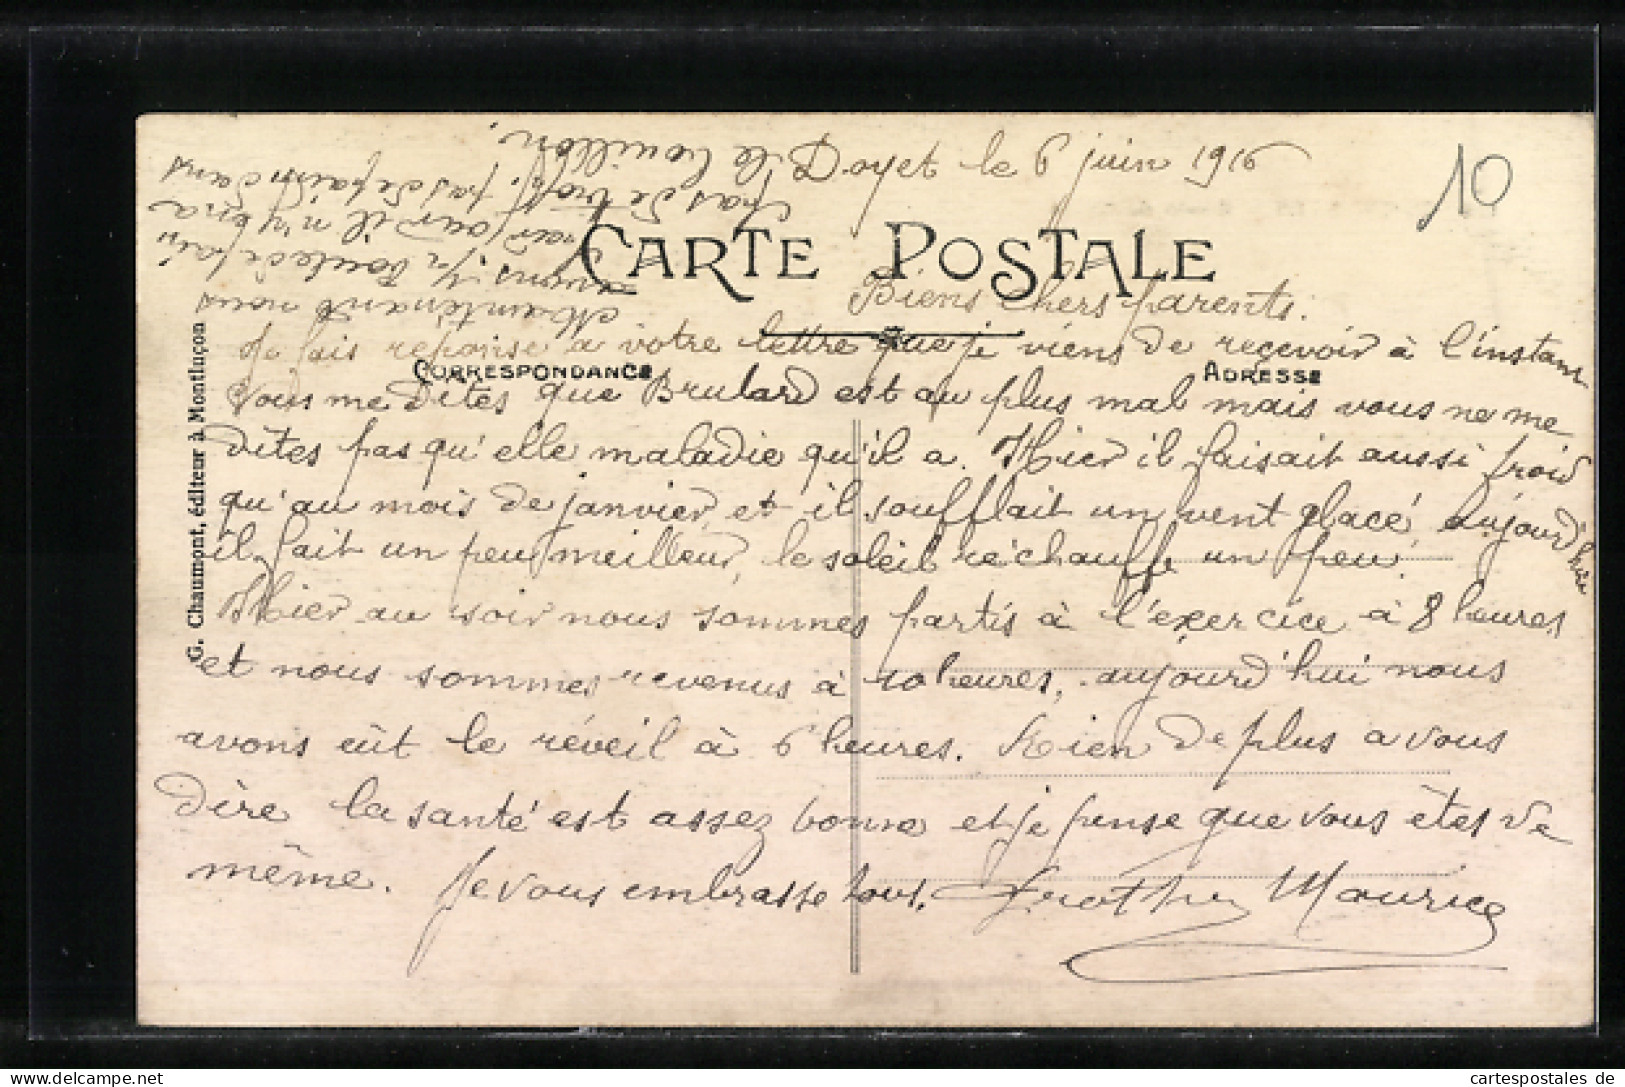 Doyet le 6 juin 1916
10
CARTE POSTALE
Biens chers parents.
Je fais reponse a votre lettre que je viens de reçevoir à l'instant
CORRESPONDANCE
ADRESSE
Vous me dites que Brulard est au plus mal mais vous ne me
dites pas qu'elle maladie qu'il a. Hier il faisait aussi froid
qu'au mois de janvier, et il soufflait un vent glacé, aujourd'hui
il fait un peu meilleur, le soleil réchauffe un peu.
Hier au soir nous sommes partis à l'exercice à 8 heures
et nous sommes revenus à 10 heures, aujourd'hui nous
avons eût le réveil à 6 heures. Rien de plus a vous
dire la santé est assez bonne et je pense que vous êtes de
même. Je vous embrasse tous. Maurice
Maintenant nous
avons
il n'y en a
pas de trop, pas de pain dans
le bouillon.
G. Chaumont, éditeur à Montluçon
cartespostales de